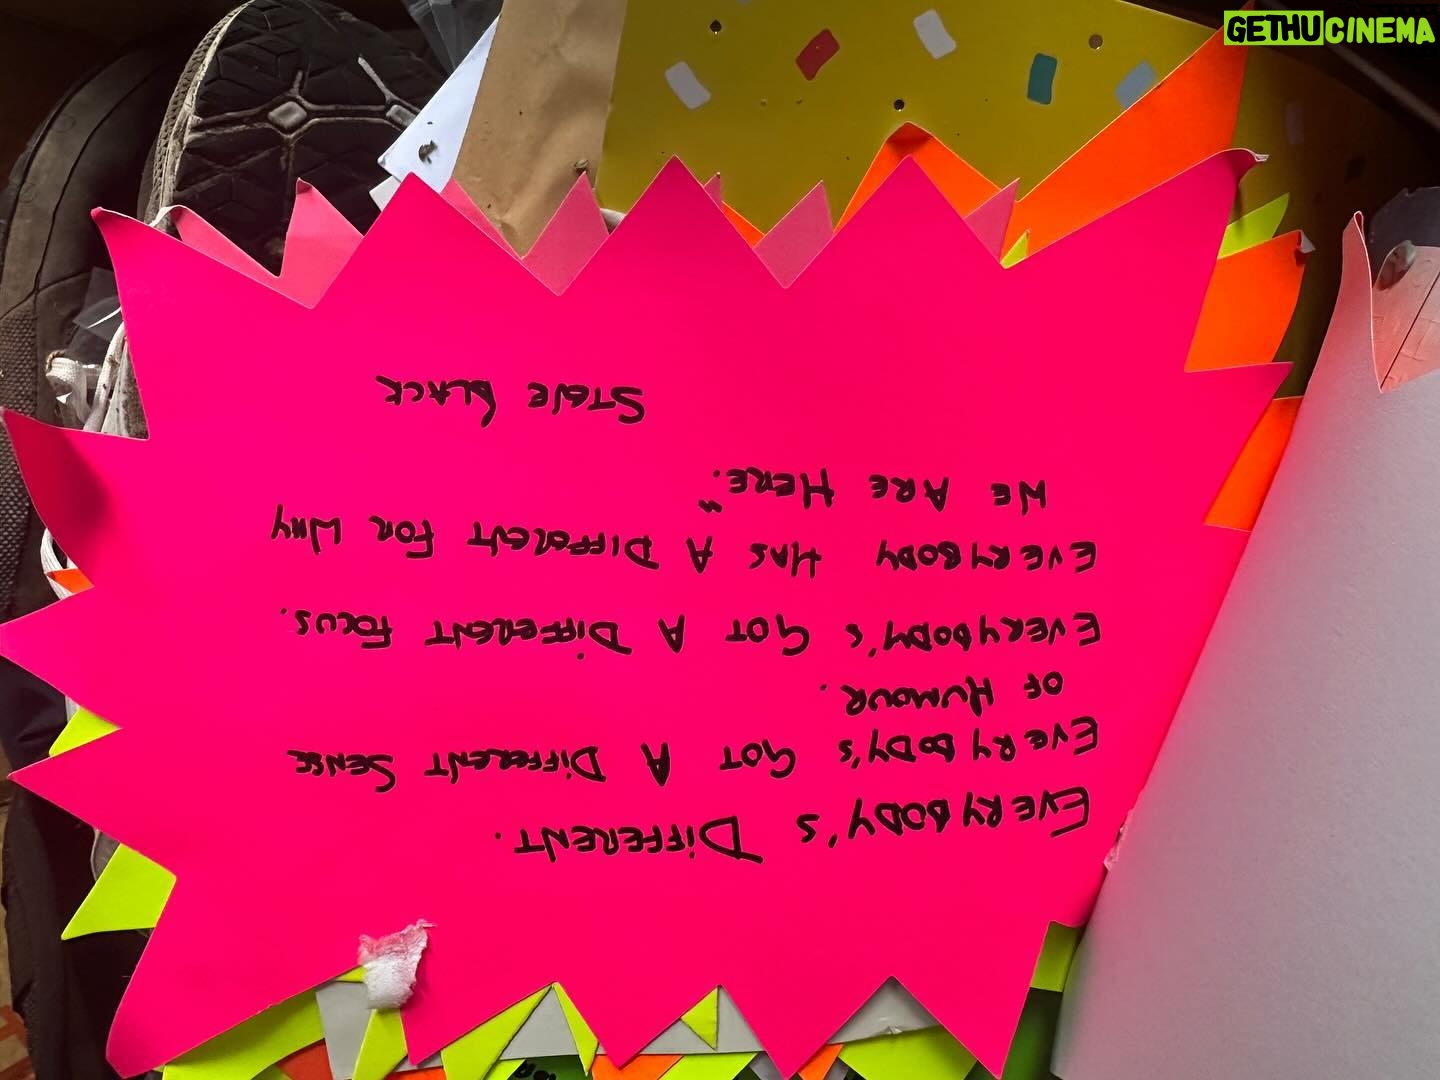 EVERYBODY'S DIFFERENT.
EVERYBODY'S GOT A DIFFERENT SENSE
OF HUMOUR.
EVERYBODY'S GOT A DIFFERENT FOCUS.
EVERYBODY HAS A DIFFERENT FOR WHY
WE ARE HERE."
STEVE BLACK
GETHUCINEMA